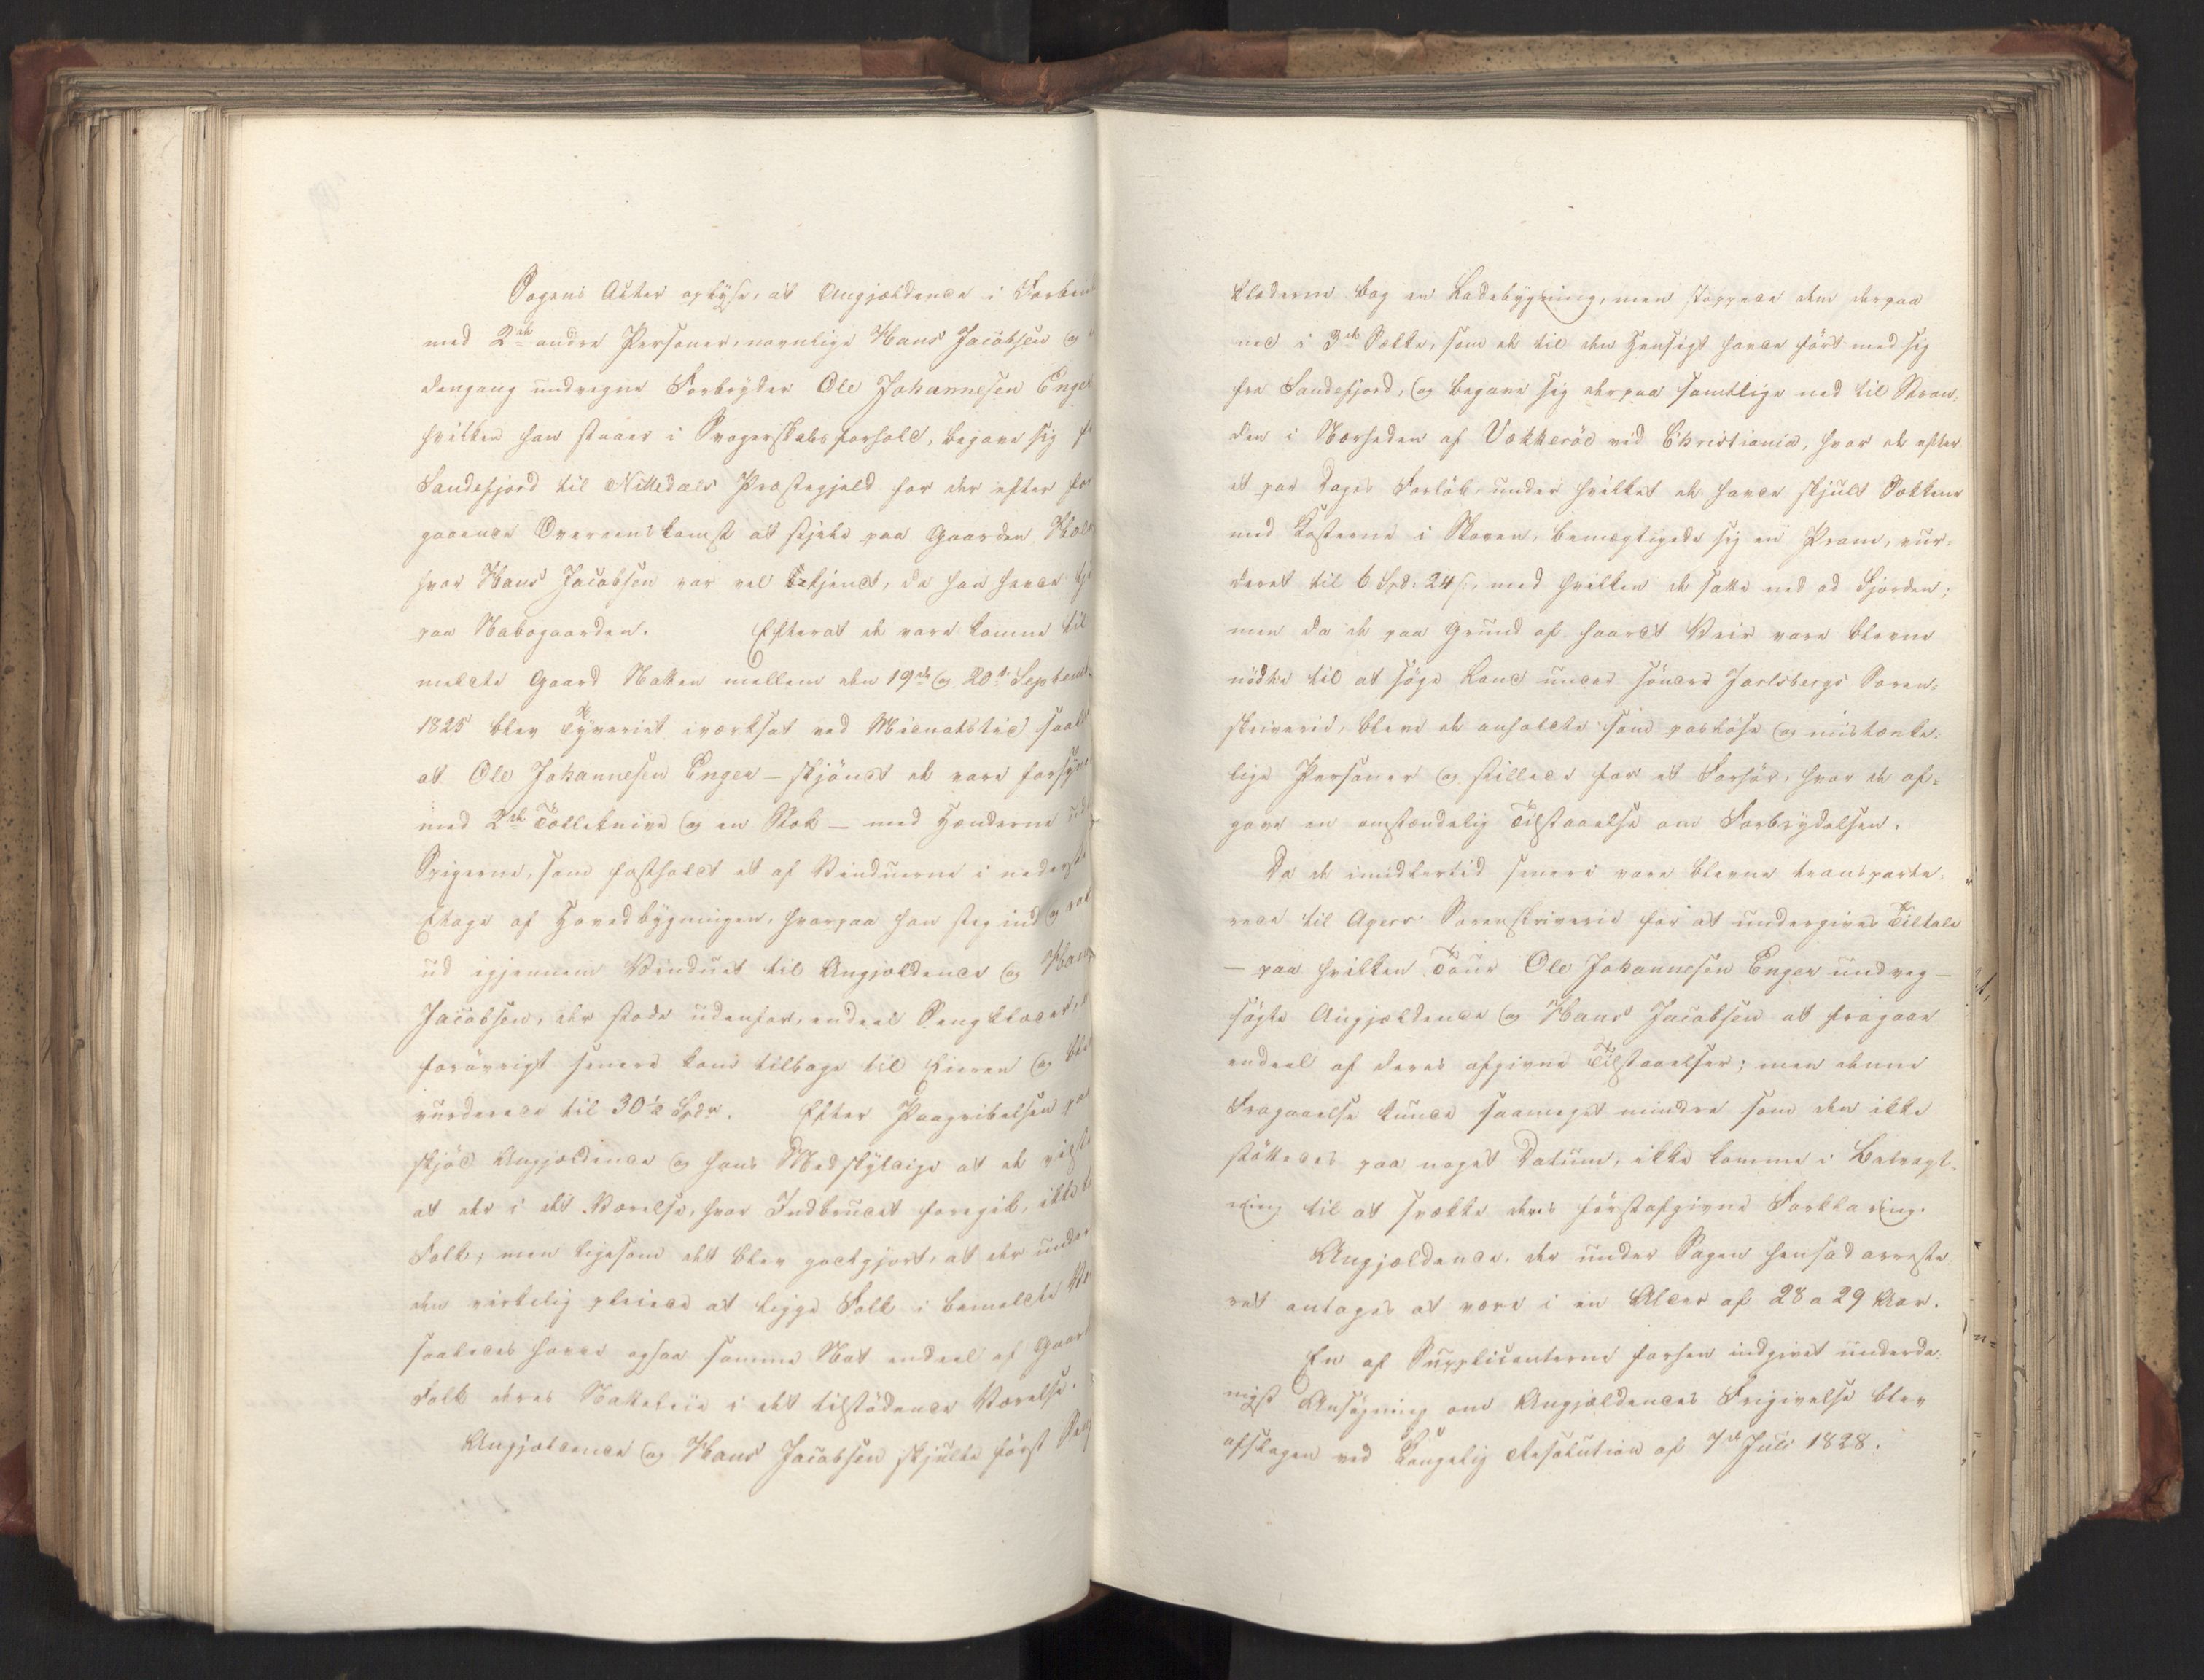 Sagens Akter oplyse, at Angjældende i Forbind
med 2de andre Personer, navnlige Hans Jacobsen og
dengang undvegne Forbryder Ole Johannesen Enger
hvilken han staaer i Svogerskabsforhold, begave sig fr
Sandefjord til Nittedals Præstegjeld for der efter for
gaaende Overeenskomst at stjæle paa Gaarden
hvor Hans Jacobsen var vel bekjendt, da han havde tje
paa Nabogaarden. Efterat de vare komne til
meldte Gaard Natten mellem den 19de og 20de Septemb.
1825 blev Tyveriet iværksat ved Midnatstid saale
at Ole Johannesen Enger – skjöndt de vare forsyne
med 2de Tolleknive og en Stok – med Hænderne ud
Spigerne, som fastholdt et af Vinduerne i nederste
Etage af Hovedbygningen, hvorpaa han steg ind og rak
ud igjennem Vinduet til Angjældende og Hans
Jacobsen, der stode udenfor, endeel Sengklæder,
forövrigt senere kom tilbage til Eieren og ble
vurderede til 30½ Spdr. Efter Paagribelsen paa
skjöd Angjældende og hans Medskyldige at de vidste
at der i det Værelse, hvor Indbrudet foregik, ikke
Folk; men ligesom det blev godtgjort, at der under
den virkelig pleiede at ligge Folk i bemeldte
saaledes havde ogsaa samme Nat endeel af Gaard
Folk deres Natteleie i det tilstödende Værelse.
Angjældende og Hans Jacobsen skjulte först
klæderne bag en Ladebygning, men stoppede dem derpaa
ned i 3de Sække, som de til den Hensigt havde fört med sig
fra Sandefjord, og begave sig derpaa samtlige ned til Stran-
den i Nærheden af Vækkeröe ved Christiania, hvor de efter
et par Dages Forlöb, under hvilket de havde skjult Sækkene
med Kosterne i Skoven, bemægtigede sig en Pram, vur-
deret til 6 Spd: 24 s., med hvilken de satte ned ad Fjorden;
men da de paa Grund af haardt Veir vare blevne
nödte til at söge Land under söndre Jarlsbergs Soren-
skriverie, bleve de anholdte som paslöse og mistænke-
lige Personer og stillede for et Forhör, hvor de af-
gave en omstændelig Tilstaaelse om Forbrydelsen.
Da de imidlertid senere vare blevne transporte-
rede til Agers Sorenskriverie for at undergives Tiltale
– paa hvilken Tour Ole Johannesen Enger undveg –
sögte Angjældende og Hans Jacobsen at fragaae
endeel af deres afgivne Tilstaaelser; men denne
Fragaaelse kunde saameget mindre som den ikke
stöttedes paa noget Datum, ikke komme i Betragt-
ning til at svække deres förstafgivne Forklaring.
Angjældende, der under Sagen hensad arreste-
ret antages at være i en Alder af 28 a 29 Aar.
En af Supplicanterne forhen indgivet underda-
nigst Ansögning om Angjældendes Frigivelse blev
afslagen ved Kongelig Resolution af 7de Juli 1828.